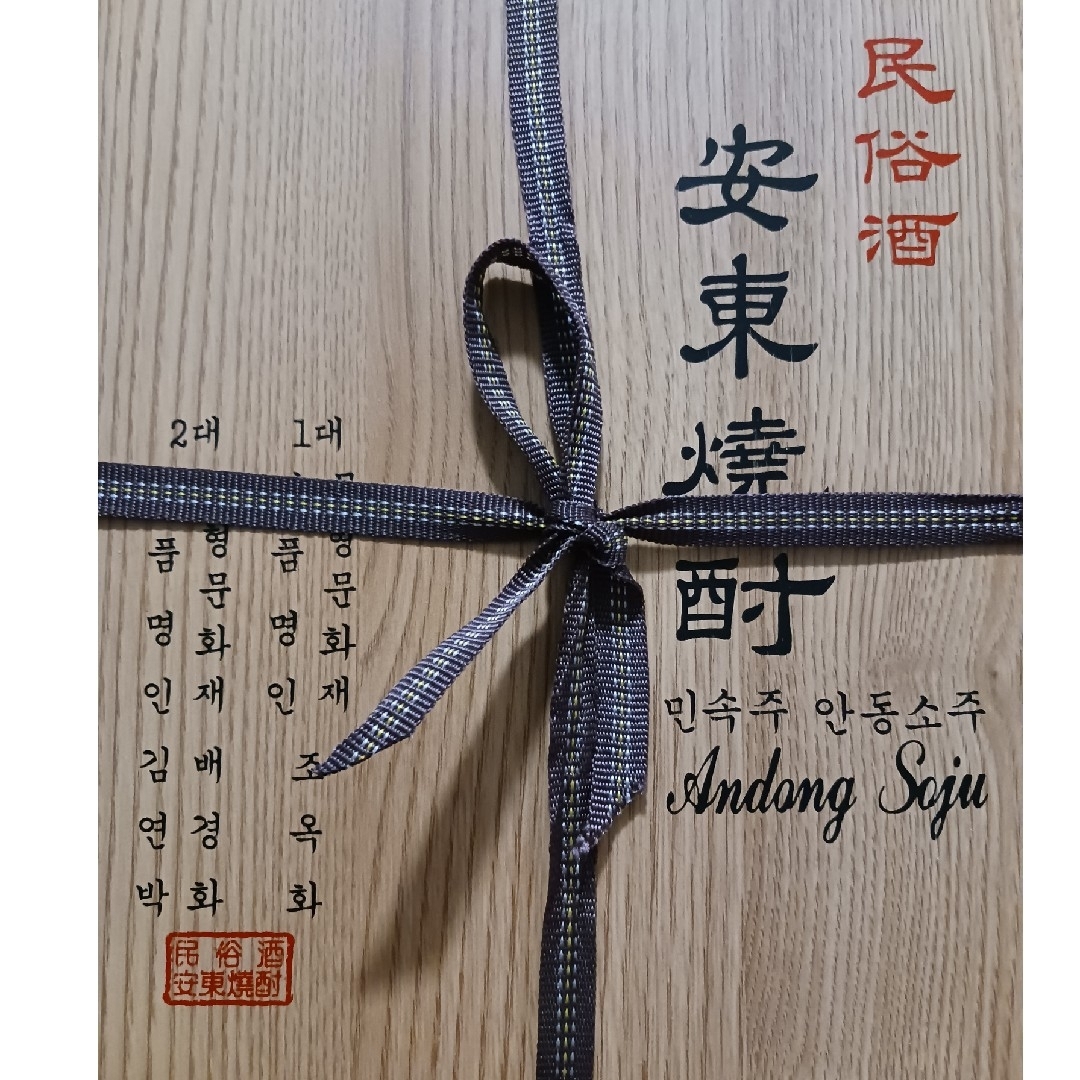 民俗酒
安東燒酎
민속주 안동소주
Andong Soju
1대
형문화재
품명인
조옥화
2대
형문화재 배경화
품명인 김연박
民俗酒
安東燒酎